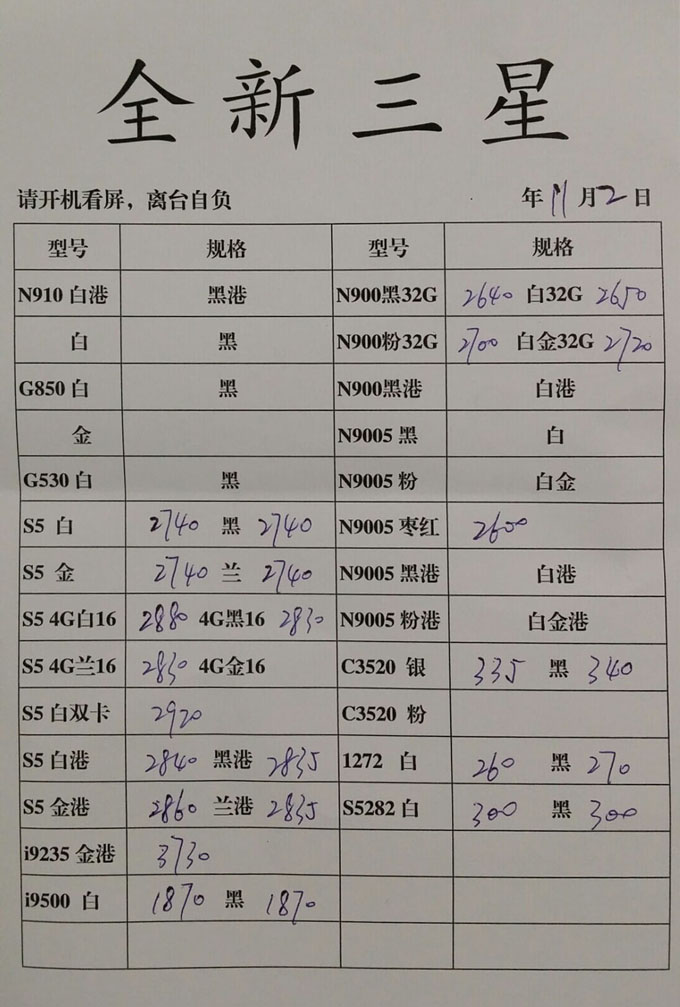 全新三星
请开机看屏，离台自负 年11月2日
型号 规格 型号 规格
N910 白港 黑港 N900黑32G 2640 白32G 2650
白 黑 N900粉32G 2700 白金32G 2720
G850 白 黑 N900黑港 白港
金 N9005 黑 白
G530 白 黑 N9005 粉 白金
S5 白 2740 黑 2740 N9005 枣红 2600
S5 金 2740 兰 2740 N9005 黑港 白港
S5 4G白16 2880 4G黑16 2830 N9005 粉港 白金港
S5 4G兰16 2830 4G金16 C3520 银 335 黑 340
S5 白双卡 2920 C3520 粉
S5 白港 2840 黑港 2835 1272 白 260 黑 270
S5 金港 2860 兰港 2835 S5282 白 300 黑 300
i9235 金港 3730
i9500 白 1870 黑 1870